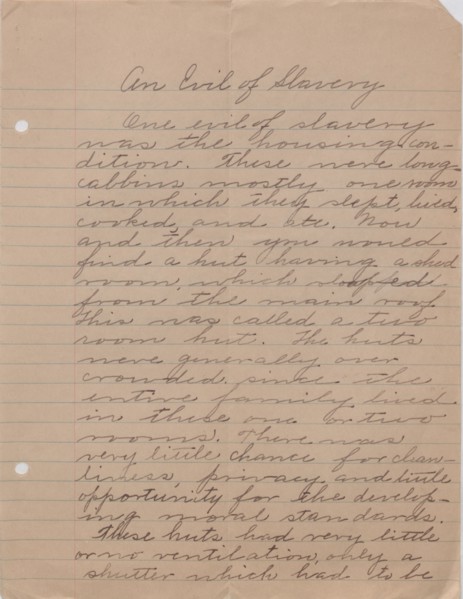 An Evil of Slavery
One evil of slavery
was the housing con-
dition. These were long
cabbins mostly one room
in which they slept, lived,
cooked, and ate. Now
and then you would
find a hut having a shed
room, which sloped
from the main roof
This was called a two
room hut. The huts
were generally over
crowded since the
entire family lived
in these one or two
rooms. There was
very little chance for clean-
liness, privacy and little
opportunity for the develop-
ing moral standards.
These huts had very little
or no ventilation, only a
shutter which had to be